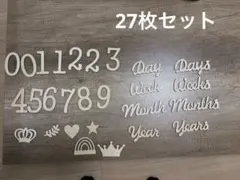 27枚セット
0011223
456789
Day Days
Week Weeks
Month Months
Year Years